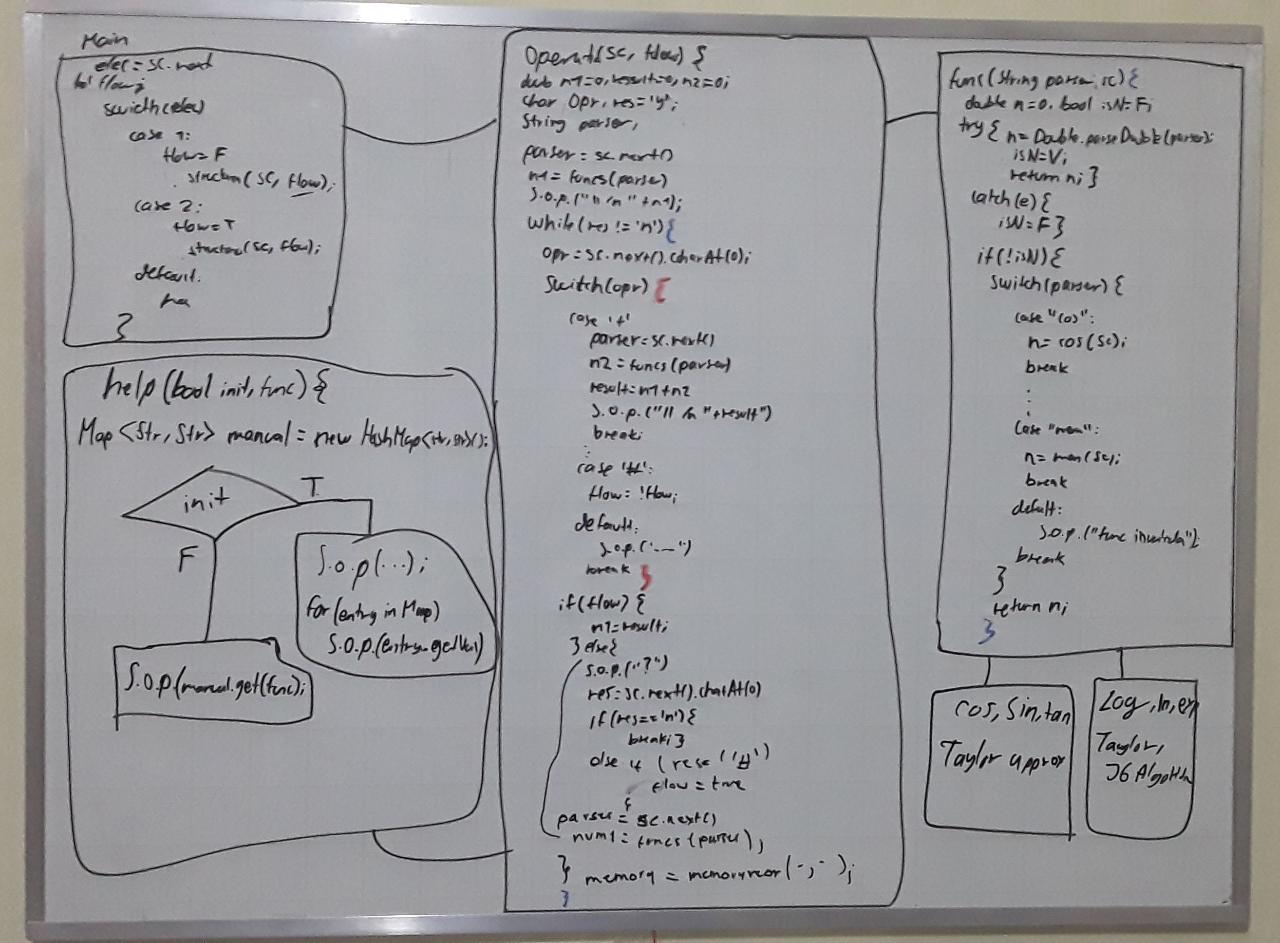 Main
elec = sc.next
flow;
swicth(elec)
case 1:
flow = F
(sc, flow);
case 2:
flow = T
(sc, flow);
default:
}
help(bool init, func){
Map <Str, Str> manual = new HashMap<str, str>();
init
T
F
S.o.p(...);
for(entry in Map)
S.o.p.(entry.
S.o.p.(manual.get(func);
Operat(sc, flow) {
doub n1=0, result=0, n2=0;
char Opr, res='y';
String parser,
parser = sc.next()
n1 = funcs(parser)
S.o.p.("\\ \n" + n1);
while(res != 'n'){
opr = sc.next().charAt(0);
Switch(opr) {
case '+'
parser = sc.next()
n2 = funcs(parser)
result = n1+n2
S.o.p.("\\ \n "+result")
break;
:
case '#':
flow = !flow;
default:
S.o.p.("---")
break }
if(flow) {
n1=result;
} else{
S.o.p.("?")
res = sc.next().charAt(0)
if(res=='n'){
break; }
else if (res= ('#')
flow = true
parser = sc.next()
num1 = funcs(parser),
} memory = (-,-);
}
func(String parser, sc){
double n=0, bool isN=F;
try{ n = Double.parseDouble(parser);
isN=V;
return n; }
catch(e) {
isN=F }
if(!isN){
switch(parser) {
case "cos":
n = cos(sc);
break
:
:
case "mem":
n = (sc);
break
default:
S.o.p.("func
break
}
return n;
}
cos, sin, tan
Taylor approx
Log, ln,
Taylor,